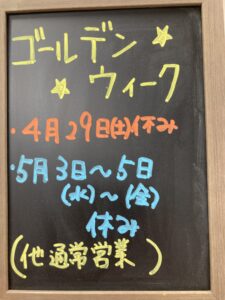 ゴールデン
ウィーク
・4月29日(土)休み
・5月3日～5日
(水)～(金)
休み
(他通常営業)